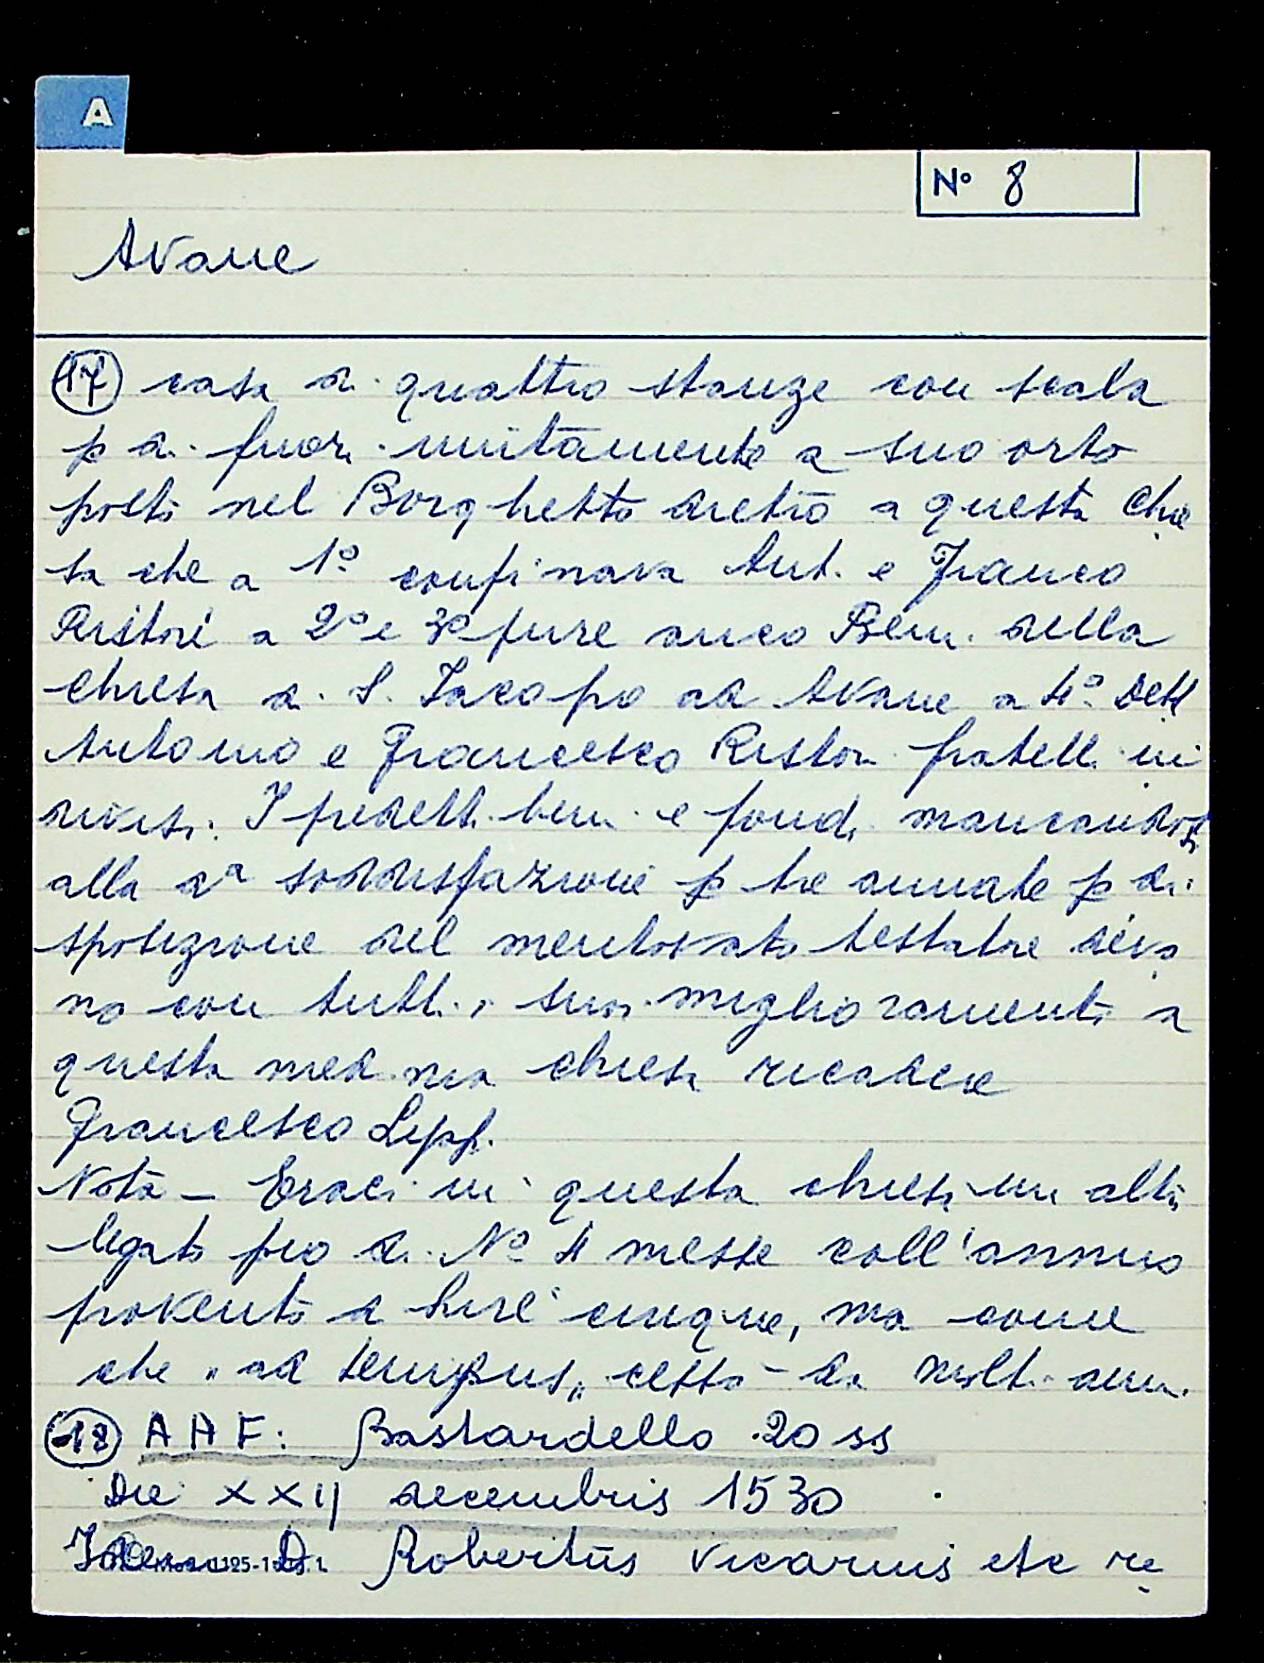 A
N° 8
Avane
17 casa di quattro stanze con scala
p di fuori unitamente a suo orto
posti nel Borghetto dietro a questa Chie
sa che a 1° confinava Ant. e Franco
Ristori a 2° e 3° pure anco Beni della
Chiesa di S. Iacopo ad Avane a 4° Detti
Antonio e Francesco Ristori fratelli in
divisi. I predetti beni e fondi mancandosi
alla da soddisfazione p tre annate p di
sposizione del mentovato testatore devo
no con tutti i suoi miglioramenti a
questa med.ma chiesa ricadere
Francesco Lippi.
Nota – Eraci in questa chiesa un altro
legato pio di N° 4 messe coll'annuo
provento di lire cinque, ma come
che "ad tempus" cessò – da molti anni.
18 A A F: Bastardello 20 ss
Die XXIJ decembris 1530
Idem D. Robertus Vicarius etc re